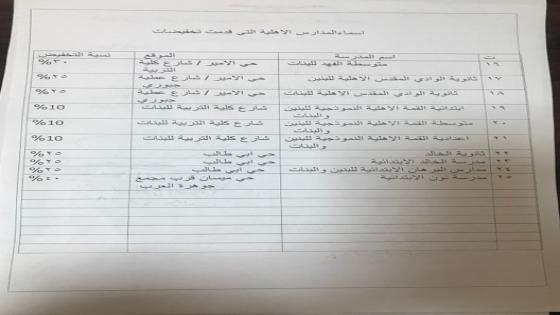 اسماء المدارس الاهلية التي قدمت تخفيضات
ت اسم المدرسة الموقع نسبة التخفيض
١٦ متوسطة الفهد للبنات حي الامير / شارع كلية التربية ٣٠%
١٧ ثانوية الوادي المقدس الاهلية للبنين حي الامير / شارع عطية جبوري ٢٥%
١٨ ثانوية الوادي المقدس الاهلية للبنات حي الامير / شارع عطية جبوري ٢٥%
١٩ ابتدائية القمة الاهلية النموذجية للبنين والبنات شارع كلية التربية للبنات 10%
٢٠ متوسطة القمة الاهلية النموذجية للبنين والبنات شارع كلية التربية للبنات 10%
٢١ اعدادية القمة الاهلية النموذجية للبنين والبنات شارع كلية التربية للبنات 10%
٢٢ ثانوية الخالد حي ابي طالب ٢٥%
٢٣ مدرسة الخالد الابتدائية حي ابي طالب ٢٥%
٢٤ مدارس البرهان الابتدائية للبنين والبنات حي ابي طالب ٢٥%
٢٥ مدرسة نون الابتدائية حي ميسان قرب مجمع جوهرة العرب ٤٠%